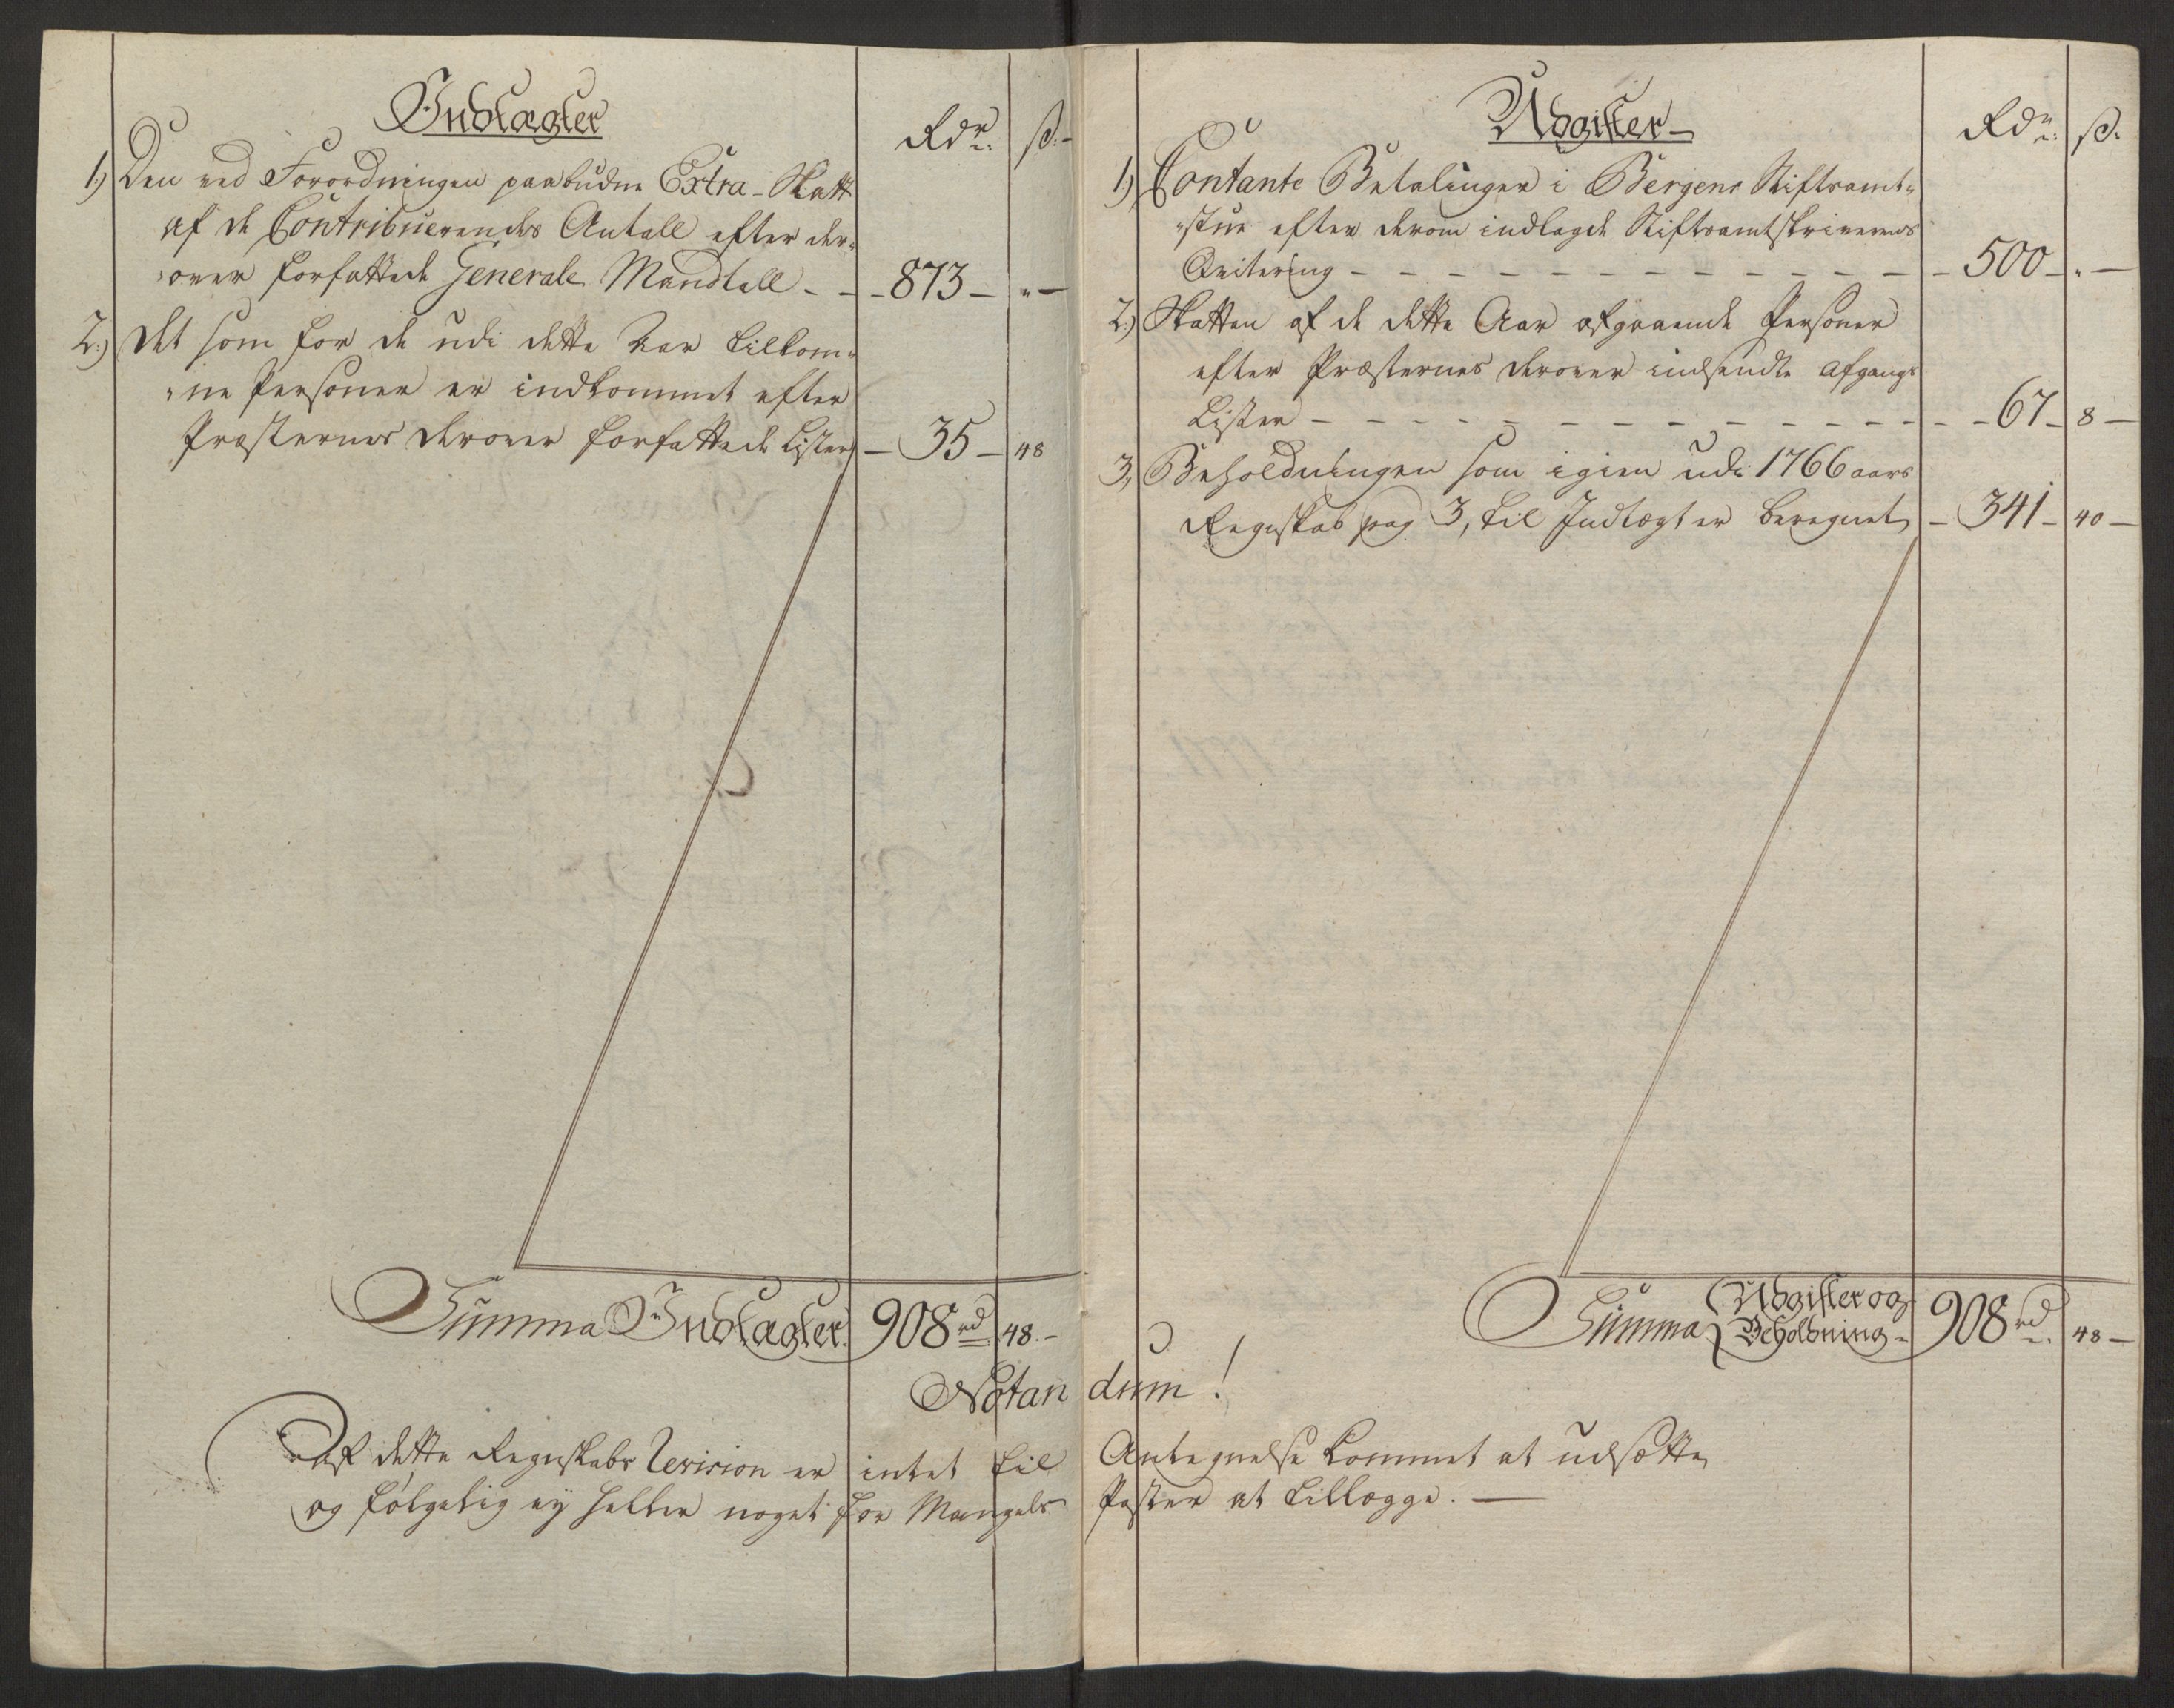 Indtægter
Rdr. ß.
1.) Den ved Forordningen paabudne Extra-Skatt
af de Contribuerendes Antall efter der-
over forfattede Generale Mandtall - - 873 - " -
2.) Det som for de udi dette Aar tilkom-
ne Personer er indkommet efter
Præsternes derover forfattede Lister - 35 - 48
Summa Indtægter 908 rd. 48. -
Udgifter -
Rdr. ß.
1.) Contante Betalinger i Bergens Stiftsamt-
stue efter derom indlagde Stiftsamtskriverens
Qvitering - 500 - " -
2.) Skatten af de dette Aar afgaaende Personer
efter Præsternes derover indsendte Afgangs
Lister - 67 - 8 -
3., Beholdningen som igien udi 1766 aars
Regnskab pag 3, til Indtægt er beregnet - 341 - 40 -
Summa Udgifter og
Beholdning - 908 rd. 48 -
Notandum!
Af dette Regnskabs Revision er intet til Antegnelse kommet at udsætte,
og følgelig ey heller noget for Mangels Poster at tillægge. -